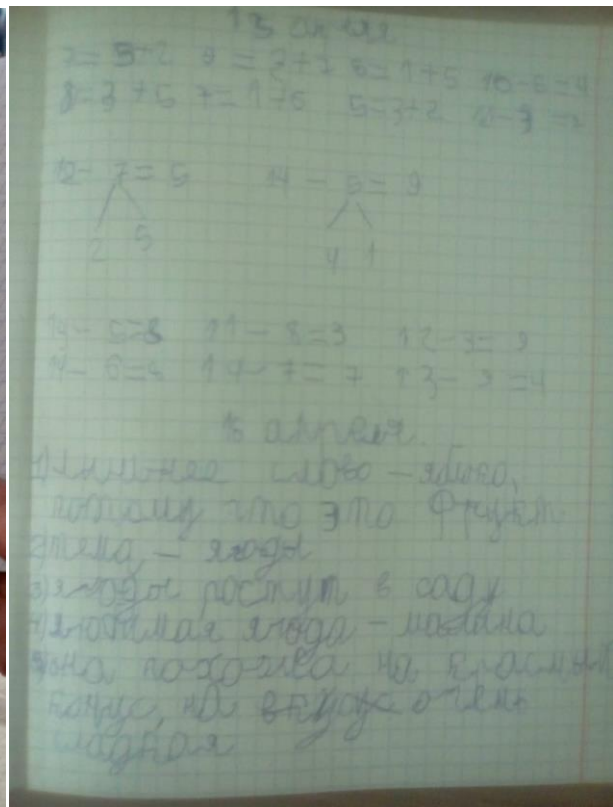 13 апреля
9 = 2+7 6=1+5 10-6=4
8=3+5 7=1+6 5=3+2
12-7=5 14-5=9
2 5 4 1
11-8=3 12-3=9
14-7=7 13-9=4
15 апреля
1) лишнее слово – яблоко,
потому что это фрукт
2) тема – ягоды
3) ягоды ростут в саду
4) любимая ягода – малина
5) она похожа на красный
конус, на вкус очень
сладкая